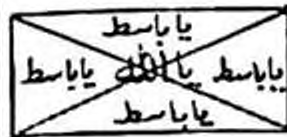 یا باسط
یا باسط یا اللہ یا باسط
یا باسط